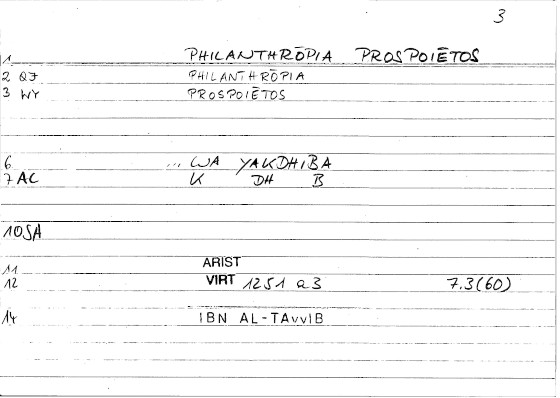 3
1 PHILANTHRŌPIA PROSPOIĒTOS
2 QJ PHILANTHRŌPIA
3 WY PROSPOIĒTOS
6 ... WA YAKDHIBA
7 AC K DH B
10 SA
11 ARIST
12 VIRT 1251 a3 7.3(60)
14 IBN AL-TAvvIB